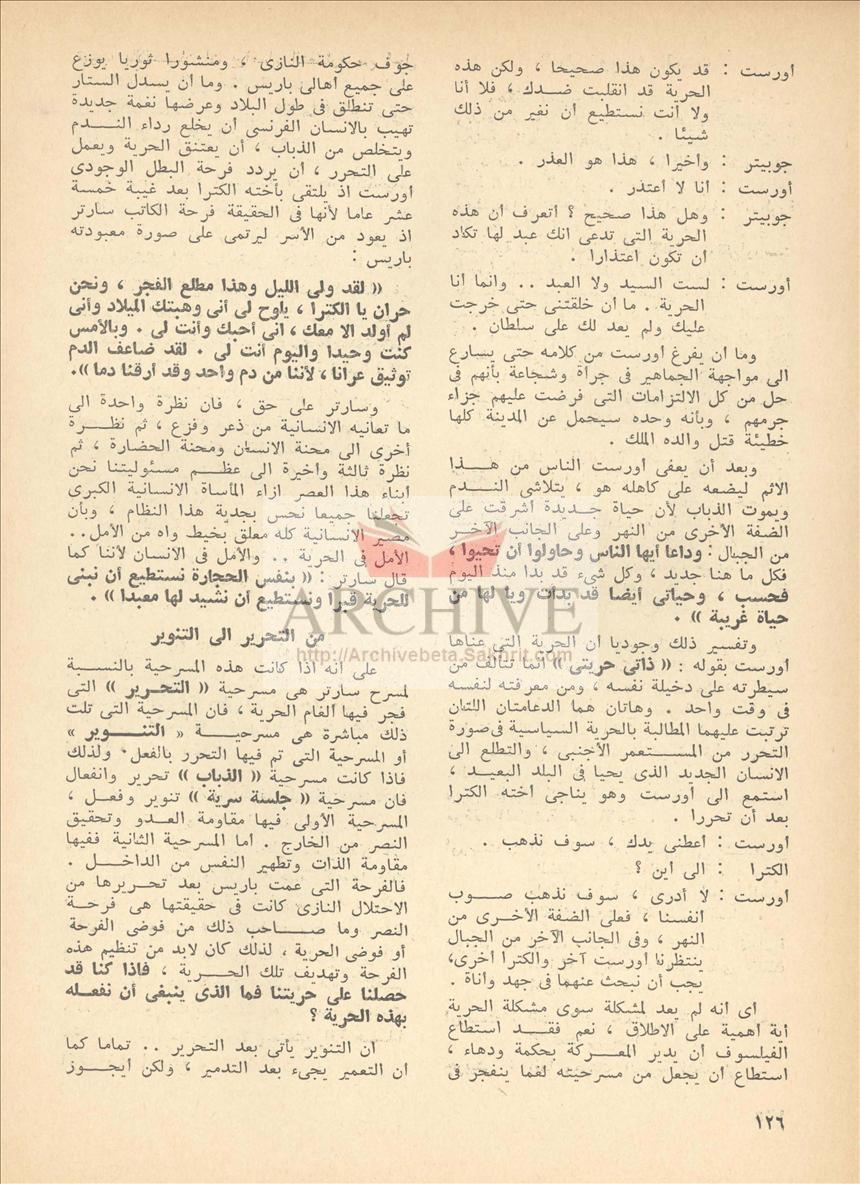 أورست : قد يكون هذا صحيحا ، ولكن هذه
الحرية قد انقلبت ضــدك ، فلا أنا
ولا أنت نستطيع أن نغير من ذلك
شيئا .
جوبيتر : وأخيرا ، هذا هو العذر .
أورست : أنا لا أعتذر .
جوبيتر : وهل هذا صحيح ؟ أتعرف أن هذه
الحرية التى تدعى انك عبد لها تكاد
أن تكون اعتذارا .
أورست : لست السيد ولا العبد .. وانما أنا
الحرية . ما أن خلقتنى حتى خرجت
عليك ولم يعد لك على سلطان .
وما ان يفرغ أورست من كلامه حتى يسارع
الى مواجهة الجماهير فى جرأة وشجاعة بأنهم فى
حل من كل الالتزامات التى فرضت عليهم جزاء
جرمهم ، وبأنه وحده سيحمل عن المدينة كلها
خطيئة قتل والده الملك .
وبعد أن يعفى أورست الناس من هــذا
الاثم ليضعه على كاهله هو ، يتلاشى النــدم
ويموت الذباب لأن حياة جــديدة أشرقت على
الضفة الأخرى من النهر وعلى الجانب الآخــر
من الجبال : وداعا أيها الناس وحاولوا أن تحيوا ،
فكل ما هنا جديد ، وكل شىء قد بدأ منذ اليوم
فحسب ، وحياتى أيضا قد بدأت ويا لها من
حياة غريبة » .
وتفسير ذلك وجوديا أن الحرية التى عناها
أورست بقوله : « ذاتى حريتى » انما تتألف من
سيطرته على دخيلة نفسه ، ومن معرفته لنفسه
فى وقت واحد . وهاتان هما الدعامتان اللتان
ترتبت عليهما المطالبة بالحرية السياسية فى صورة
التحرر من المســتعمر الأجنبى ، والتطلع الى
الانسان الجديد الذى يحيا فى البلد البعيــد ،
استمع الى أورست وهو يناجى أخته الكترا
بعد أن تحررا .
أورست : أعطنى يدك ، سوف نذهب .
الكترا : الى أين ؟
أورست : لا أدرى ، سوف نذهب صــوب
أنفسنا ، فعلى الضفة الأخــرى من
النهر ، وفى الجانب الآخر من الجبال
ينتظرنا أورست آخر والكترا أخرى،
يجب أن نبحث عنهما فى جهد وأناة .
اى انه لم يعد لمشكلة سوى مشكلة الحرية
أية أهمية على الاطلاق ، نعم فقــد استطاع
الفيلسوف أن يدير المعــركة بحكمة ودهاء ،
استطاع أن يجعل من مسرحيته لغما ينفجر فى
جوف حكومة النازى ، ومنشورا ثوريا يوزع
على جميع أهالى باريس . وما ان يسدل الستار
حتى تنطلق فى طول البلاد وعرضها نغمة جديدة
تهيب بالانسان الفرنسى أن يخلع رداء النــدم
ويتخلص من الذباب ، أن يعتنق الحرية ويعمل
على التحرر ، أن يردد فرحة البطل الوجودى
أورست اذ يلتقى بأخته الكترا بعد غيبة خمسة
عشر عاما لأنها فى الحقيقة فرحة الكاتب سارتر
اذ يعود من الأسر ليرتمى على صورة معبودته
باريس :
« لقد ولى الليل وهذا مطلع الفجر ، ونحن
حران يا الكترا ، يلوح لى أنى وهبتك الميلاد وأنى
لم أولد الا معك ، انى أحبك وأنت لى . وبالأمس
كنت وحيدا واليوم أنت لى . لقد ضاعف الدم
توثيق عرانا ، لأننا من دم واحد وقد أرقنا دما ».
وسارتر على حق ، فان نظرة واحدة الى
ما تعانيه الانسانية من ذعر وفزع ، ثم نظــرة
أخرى الى محنة الانسان ومحنة الحضارة ، ثم
نظرة ثالثة وأخيرة الى عظــم مسئوليتنا نحن
أبناء هذا العصر ازاء المأساة الانسانية الكبرى
تجعلنا جميعا نحس بجدية هذا النظام ، وبأن
مصير الانسانية كله معلق بخيط واه من الأمل..
الأمل فى الحرية .. والأمل فى الانسان لأننا كما
قال سارتر : « بنفس الحجارة نستطيع أن نبنى
للحرية قبرا ونستطيع أن نشيد لها معبدا » .
من التحرير الى التنوير
على أنه اذا كانت هذه المسرحية بالنســبة
لمسرح سارتر هى مسرحية « التحــرير » التى
فجر فيها ألغام الحرية ، فان المسرحية التى تلت
ذلك مباشرة هى مسرحيــة « التنــوير »
أو المسرحية التى تم فيها التحرر بالفعل ولذلك
فاذا كانت مسرحية « الذباب » تحرير وانفعال
فان مسرحية « جلسة سرية » تنوير وفعــل ،
المسرحية الأولى فيها مقاومة العدو وتحقيق
النصر من الخارج . أما المسرحية الثانية ففيها
مقاومة الذات وتطهير النفس من الداخــل .
فالفرحة التى عمت باريس بعد تحــريرها من
الاحتلال النازى كانت فى حقيقتها هى فرحــة
النصر وما صــاحب ذلك من فوضى الفرحة
أو فوضى الحرية ، لذلك كان لابد من تنظيم هذه
الفرحة وتهديف تلك الحــرية ، فاذا كنا قد
حصلنا على حريتنا فما الذى ينبغى أن نفعــله
بهذه الحرية ؟
ان التنوير يأتى بعد التحرير .. تماما كما
أن التعمير يجىء بعد التدمير ، ولكن أيجــوز
ARCHIVE
http://Archivebeta.Sakhrit.com
١٢٦